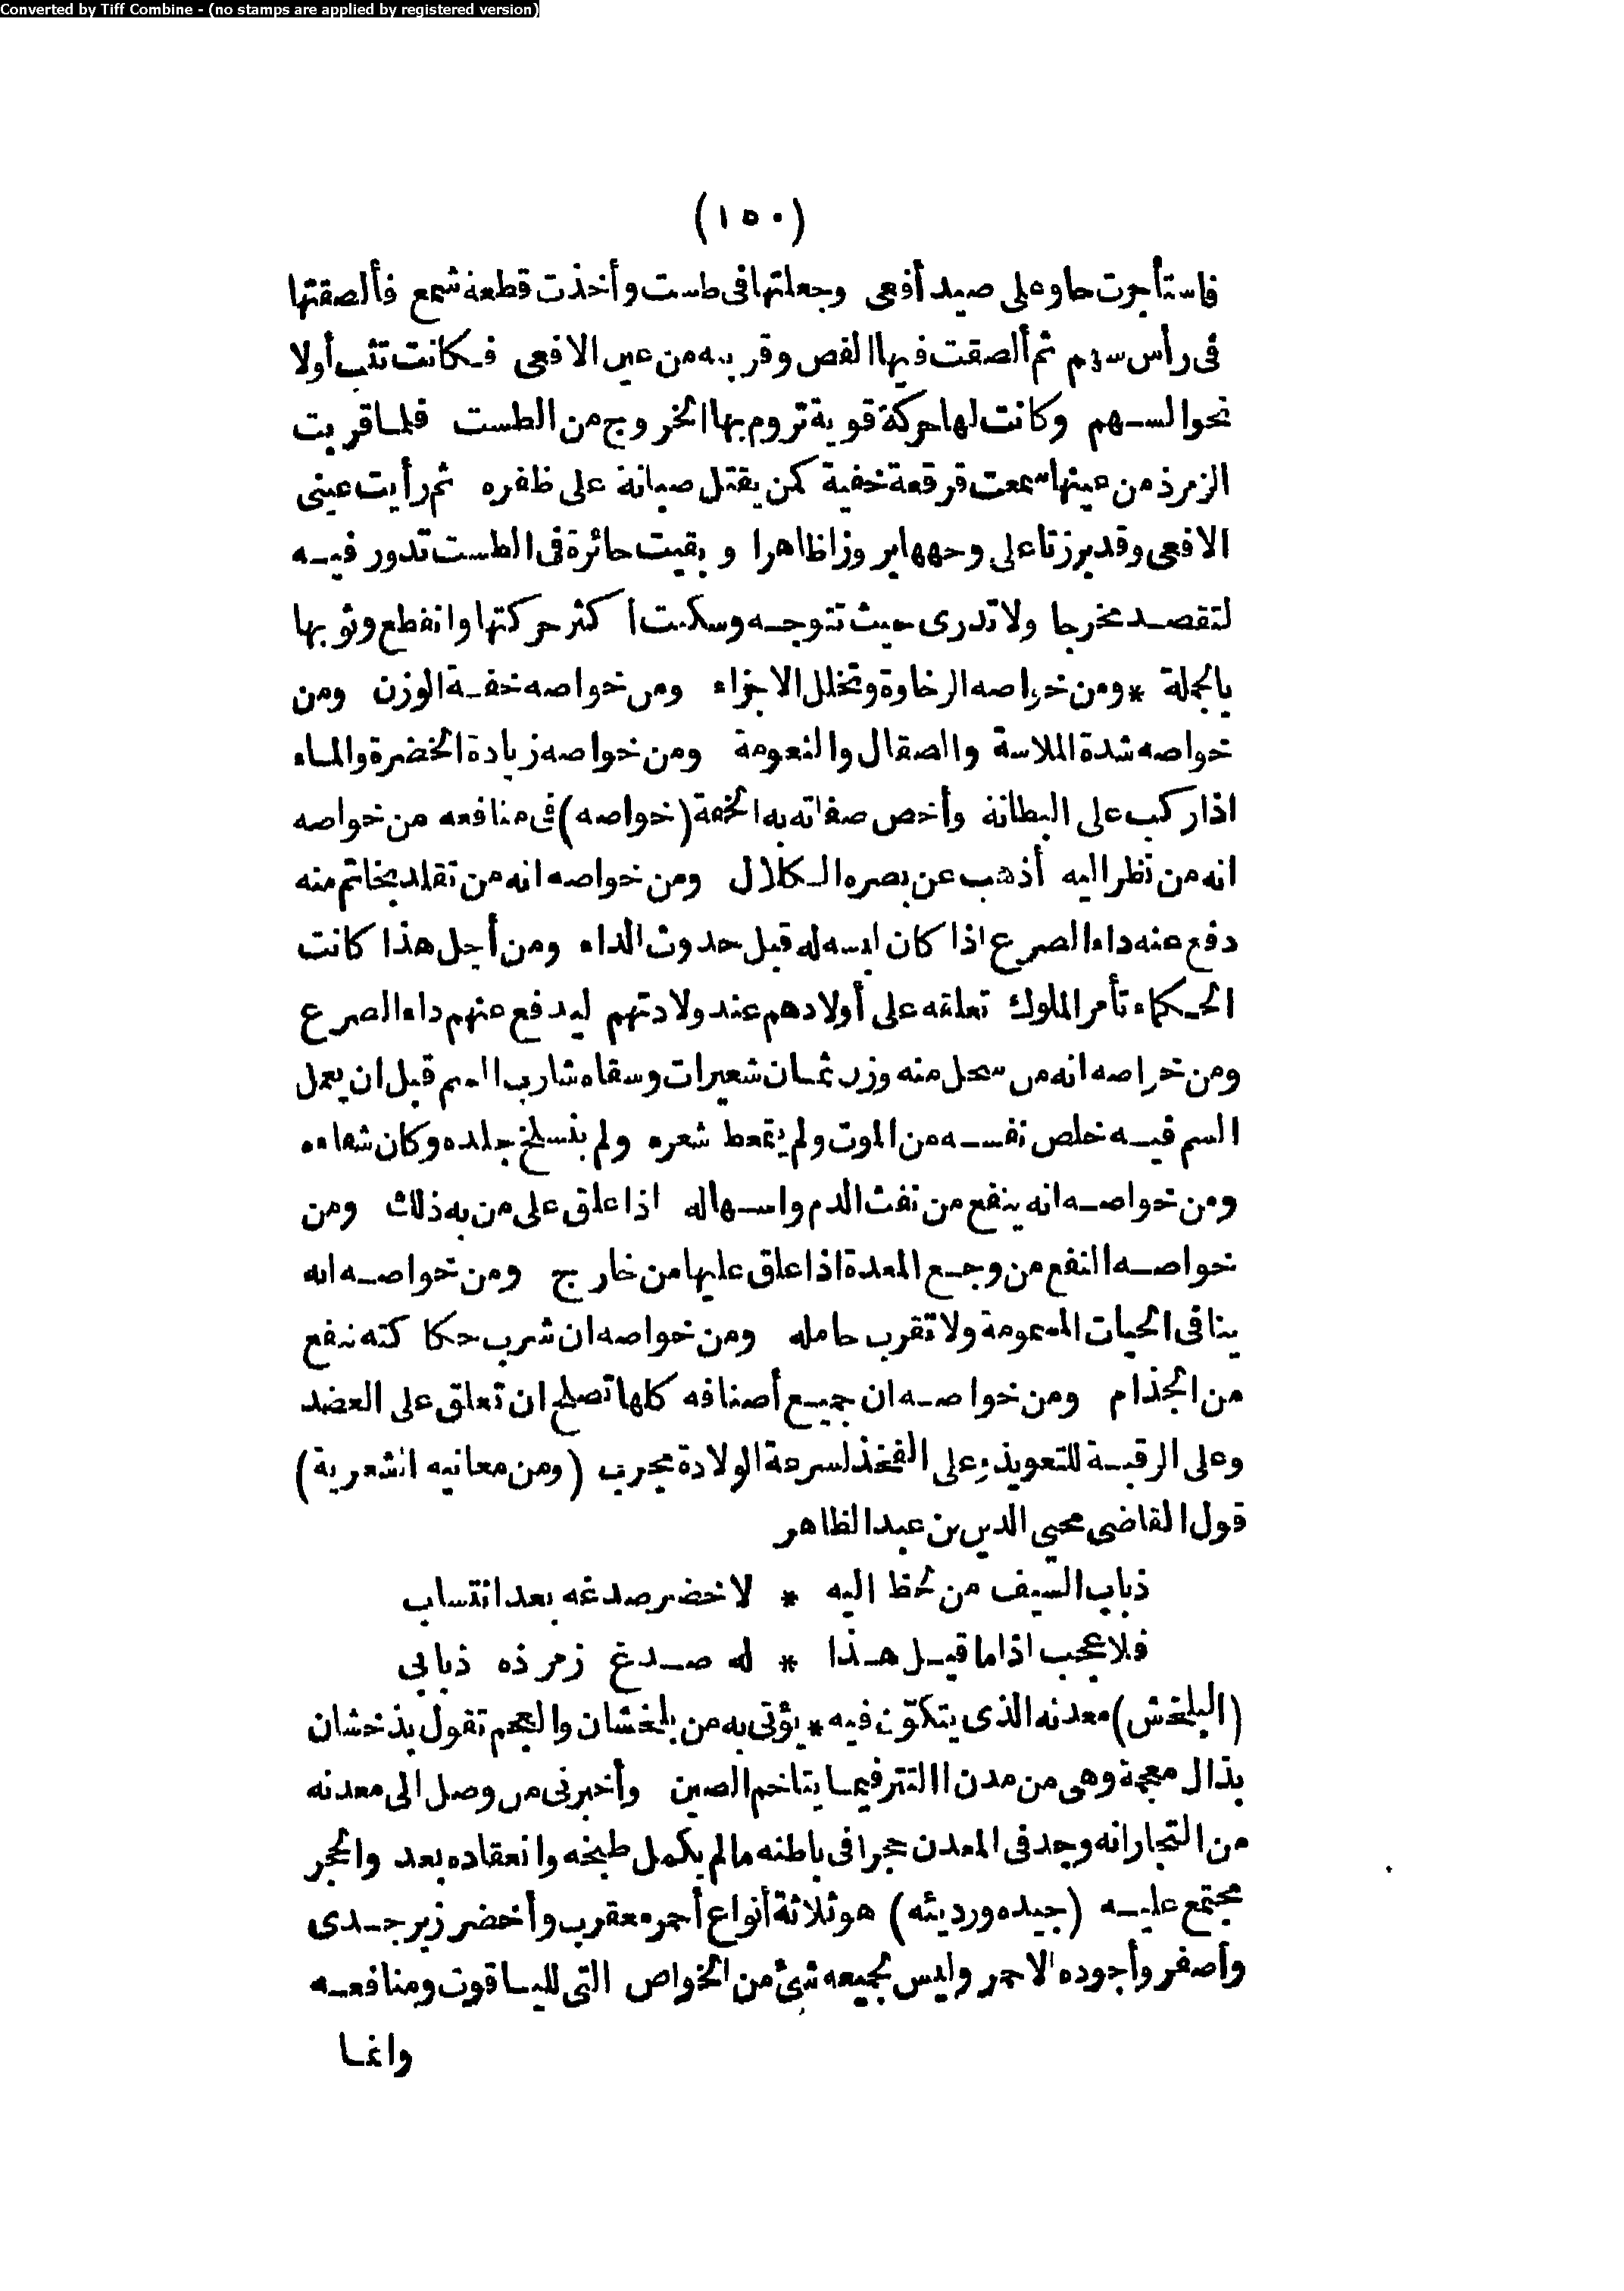 Converted by Tiff Combine - (no stamps are applied by registered version)
(١٥٠)
فاستأجرت حاو على صيد أفعى وجعلتها فى طست وأخذت قطعة شمع فألصقتها
فى رأس سهم ثم ألصقت فيها الفص وقربه من عين الافعى فكانت تثب أولا
نحو السهم وكانت لها حركة قوية تروم بها الخروج من الطست فلما قربت
الزمرذ من عينها سمعت قرقعة خفية كمن يقتل صبانة على ظفره ثم رأيت عينى
الافعى وقد برزتا على وجهها بروزا ظاهرا وبقيت حائرة فى الطست تدور فيه
لتقصد مخرجا ولا تدرى حيث تتوجه وسكنت أكثر حركتها وانقطع وثوبها
بالجملة * ومن خواصه الرخاوة وتخلل الاجزاء ومن خواصه خفة الوزن ومن
خواصه شدة الملاسة والصقال والنعومة ومن خواصه زيادة الخضرة والماء
اذا ركب على البطانة وأخص صفاته به الخفة (خواصه) فى منافعه من خواصه
انه من نظر اليه أذهب عن بصره الكلال ومن خواصه انه من تقلد بخاتم منه
دفع عنه داء الصرع اذا كان لبسه له قبل حدوث الداء ومن أجل هذا كانت
الحكماء تأمر الملوك تعلقه على أولادهم عند ولادتهم ليدفع عنهم داء الصرع
ومن خواصه انه من سحل منه وزن ثمان شعيرات وسقاه شارب السم قبل ان يعمل
السم فيه خلص نفسه من الموت ولم يتمعط شعره ولم ينسلخ جلده وكان شفاءه
ومن خواصه انه ينفع من نفث الدم واسهاله اذا علق على من به ذلك ومن
خواصه النفع من وجع المعدة اذا علق عليها من خارج ومن خواصه انه
ينافى الحيات المسمومة ولا تقرب حامله ومن خواصه ان شرب حكاكته نفع
من الجذام ومن خواصه ان جميع أصنافه كلها تصلح ان تعلق على العضد
وعلى الرقبة للتعويذ وعلى الفخذ لسرعة الولادة مجرب (ومن معانيه الشعرية)
قول القاضى محيى الدين بن عبد الظاهر
ذباب السيف من لحظ اليه * لاخضر صدغه بعد انتساب
فلا عجب اذا ما قيل هذا * له صدغ زمرذه ذبابى
(البلخش) معدنه الذى يتكوّن فيه * يؤتى به من بلخشان والعجم تقول بذخشان
بذال معجمة وهى من مدن التتر فيما يتاخم الصين وأخبرنى من وصل الى معدنه
من التجار انه وجد فى المعدن حجرا فى باطنه ما لم يكمل طبخه وانعقاده بعد والحجر
مجتمع عليه (جيده ورديئه) هو ثلاثة أنواع أحمر معقرب وأخضر زبرجدى
وأصفر وأجوده الاحمر وليس لجميعه شئ من الخواص التى للياقوت ومنافعه
وانما